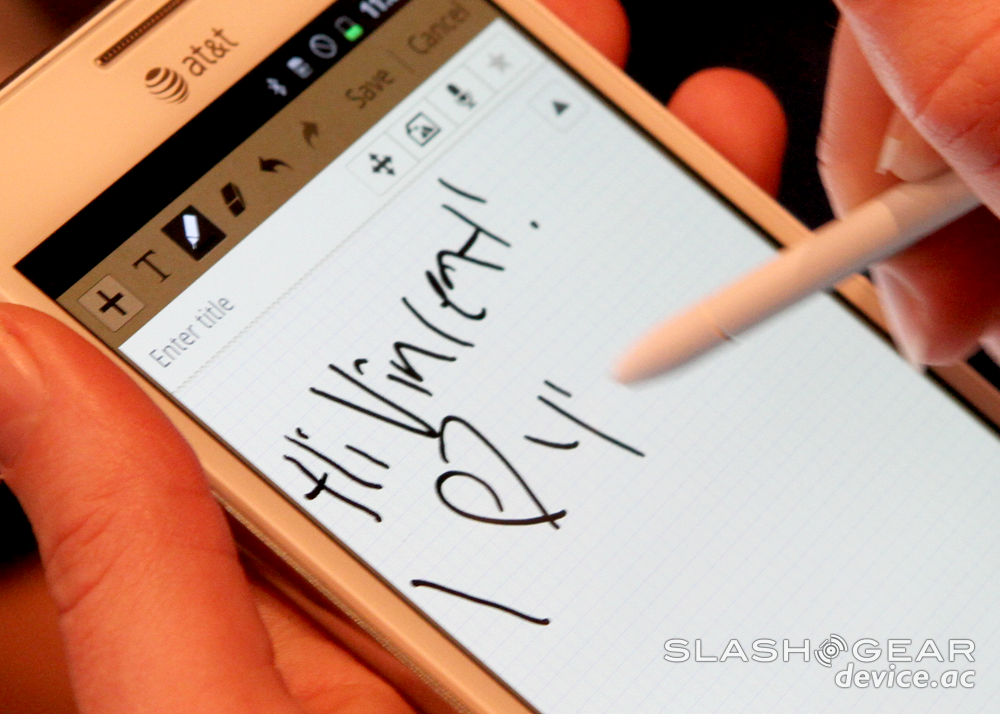 at&t
11:
Save | Cancel
T
Enter title
Hi Vincent!
I ♡ y
SLASHGEAR
device.ac